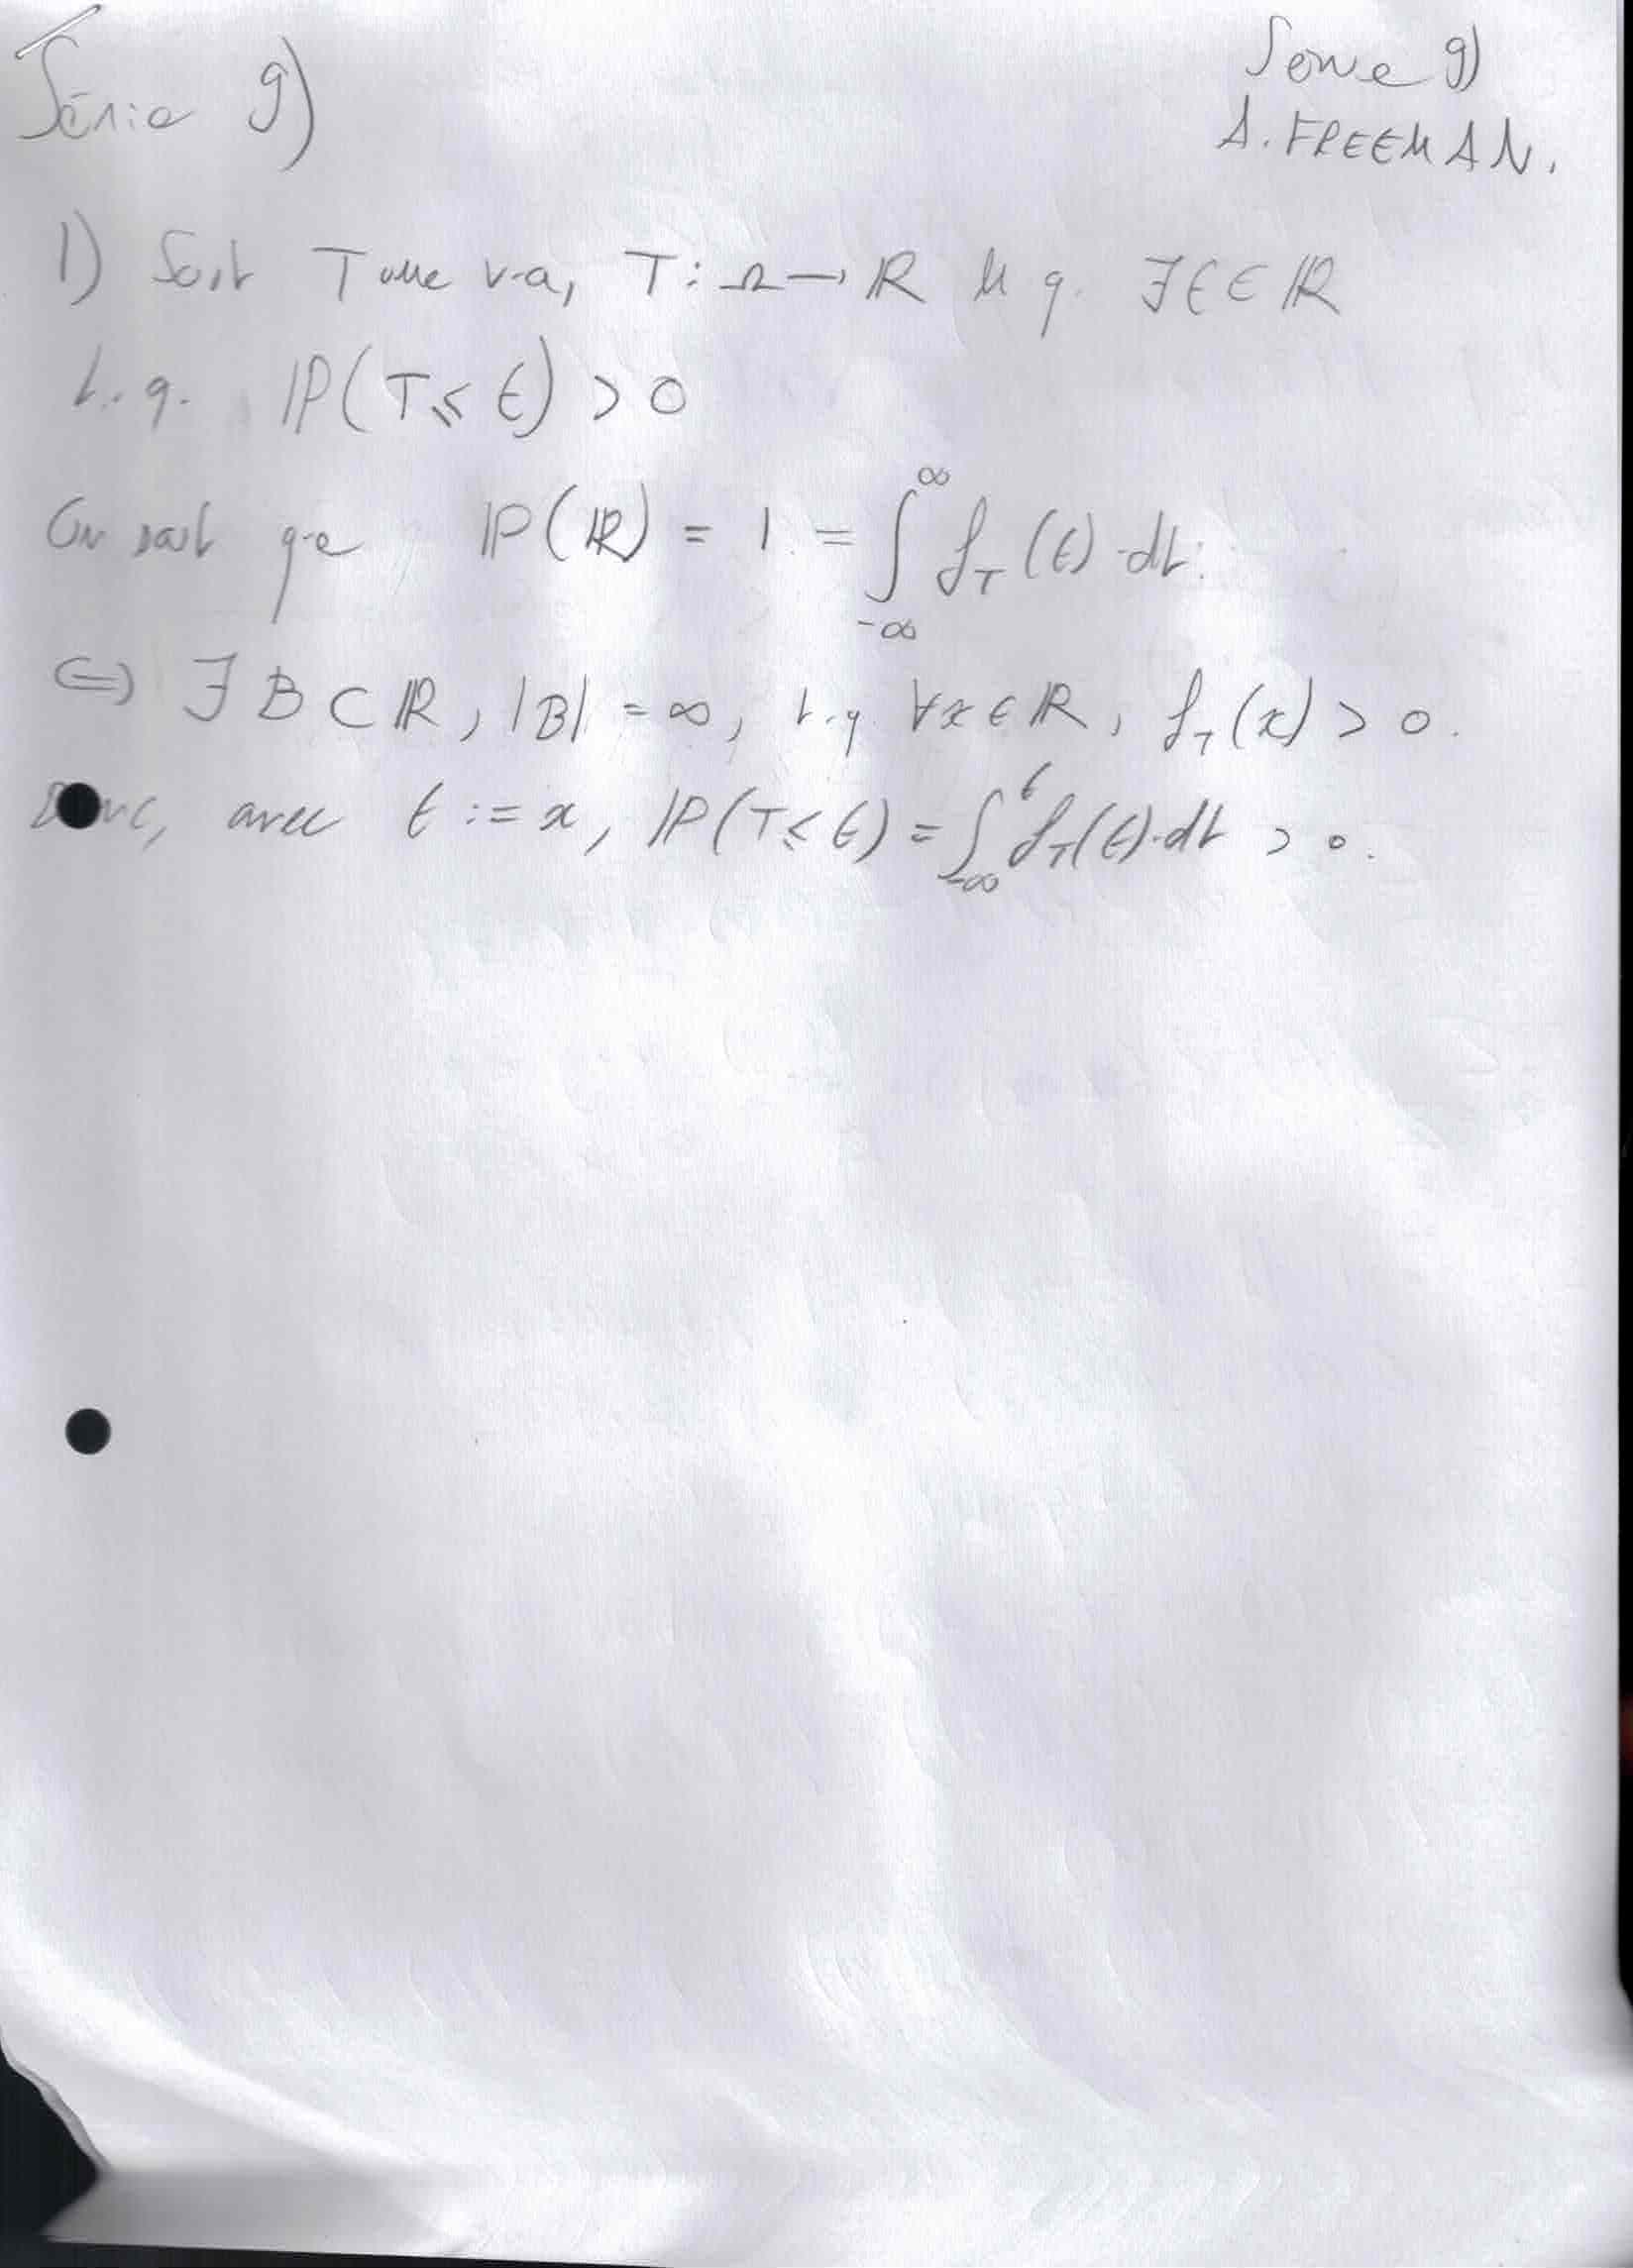 Série 9)
Série 9)
A. FREEMAN.
1) Soit T une v.a, T: Ω → ℝ M q. ∃ t ∈ ℝ
t.q. ℙ(T ≤ t) > 0
On sait que ℙ(ℝ) = 1 = ∫_{-∞}^{∞} f_T(t)·dt.
⇔ ∃ B ⊂ ℝ, |B| = ∞, t.q ∀x ∈ ℝ, f_T(x) > 0.
Donc, avec t := x, ℙ(T ≤ t) = ∫_{-∞}^{t} f_T(t)·dt > 0.